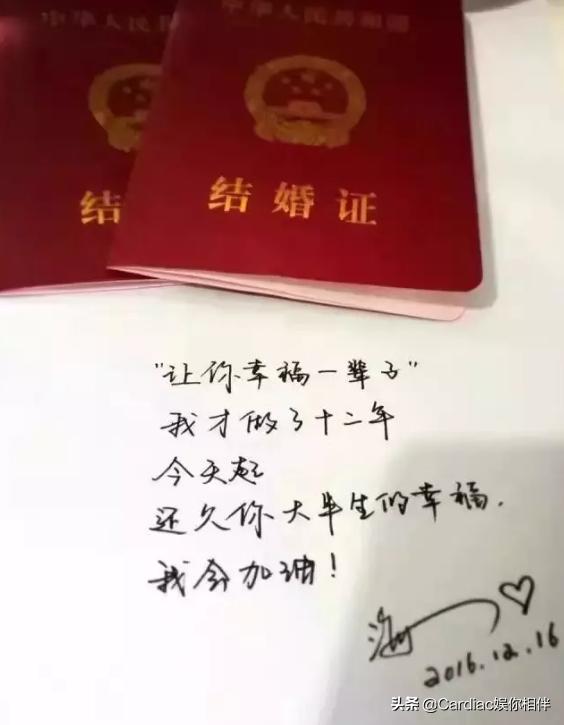 中华人民
中华人民共和国
结
结婚证
"让你幸福一辈子"
我才做了十二年
今天起
还久你大半生的幸福.
我会加油!
2016.12.16
头条 @Cardiac娱你相伴